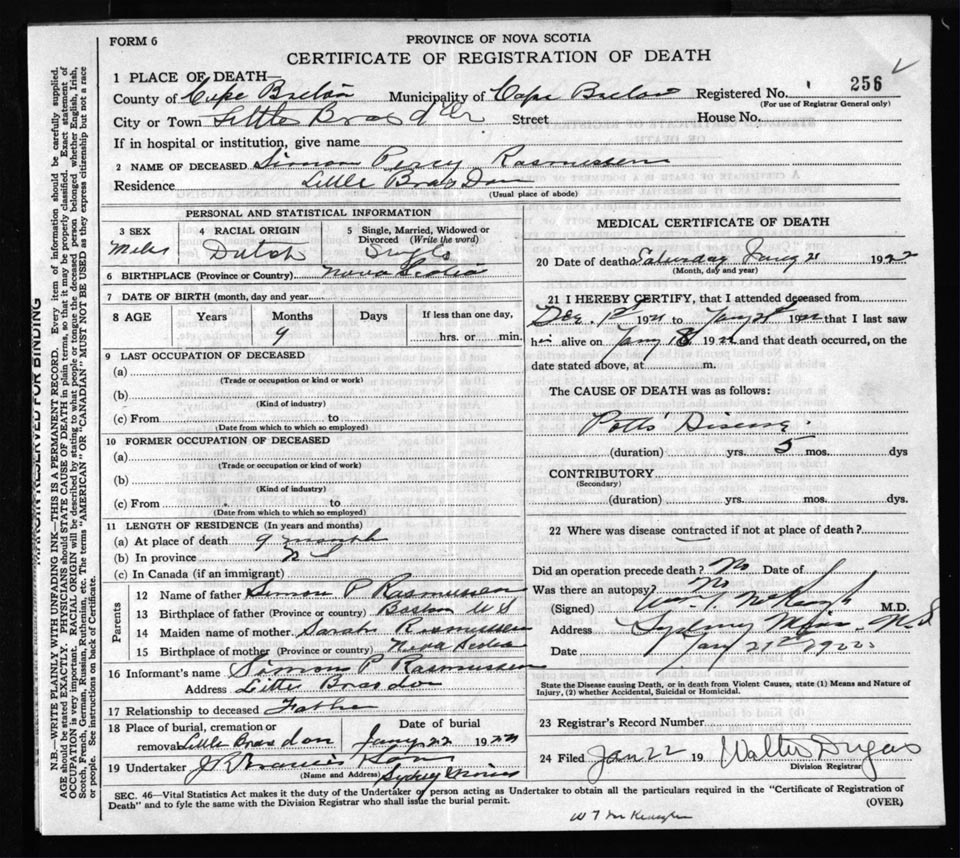 FORM 6
PROVINCE OF NOVA SCOTIA
CERTIFICATE OF REGISTRATION OF DEATH
1 PLACE OF DEATH—
County of Cape Breton Municipality of Cape Breton Registered No. 256
(For use of Registrar General only)
City or Town Little Bras d'Or Street House No.
If in hospital or institution, give name
2 NAME OF DECEASED Simon Percy Rasmussen
Residence Little Bras Dor
(Usual place of abode)
PERSONAL AND STATISTICAL INFORMATION
3 SEX
Male
4 RACIAL ORIGIN
Dutch
5 Single, Married, Widowed or Divorced (Write the word)
Single
6 BIRTHPLACE (Province or Country) Nova Scotia
7 DATE OF BIRTH (month, day and year)
8 AGE Years Months Days If less than one day,
9 hrs. or min.
9 LAST OCCUPATION OF DECEASED
(a)
(Trade or occupation or kind or work)
(b)
(Kind of industry)
(c) From to
(Date from which to which so employed)
10 FORMER OCCUPATION OF DECEASED
(a)
(Trade or occupation or kind of work)
(b)
(Kind of industry)
(c) From to
(Date from which to which so employed)
11 LENGTH OF RESIDENCE (In years and months)
(a) At place of death 9 month
(b) In province N S
(c) In Canada (if an immigrant)
Parents
12 Name of father Simon P Rasmussen
13 Birthplace of father (Province or country) Boston U S
14 Maiden name of mother Sarah Rasmussen
15 Birthplace of mother (Province or country) Nova Scotia
16 Informant's name Simon P Rasmussen
Address Little Bras dor
17 Relationship to deceased Father
18 Place of burial, cremation or removal Little Bras dor Date of burial Jany 22 1922
19 Undertaker
(Name and Address) Sydney Mines
MEDICAL CERTIFICATE OF DEATH
20 Date of death Saturday Jany 21 1922
(Month, day and year)
21 I HEREBY CERTIFY, that I attended deceased from
Dec. 1st 1921 to Jany 21st 1922 that I last saw
him alive on Jany 18 1922 and that death occurred, on the
date stated above, at m.
The CAUSE OF DEATH was as follows:
Potts Disease.
(duration) yrs. 5 mos. dys
CONTRIBUTORY
(Secondary)
(duration) yrs. mos. dys.
22 Where was disease contracted if not at place of death?
Did an operation precede death? No Date of
Was there an autopsy? No
(Signed) M.D.
Address Sydney Mines. N.S
Date Jany 21st 1922
State the Disease causing Death, or in death from Violent Causes, state (1) Means and Nature of
Injury, (2) whether Accidental, Suicidal or Homicidal.
23 Registrar's Record Number
24 Filed Jan 22 19 Walter Dugas
Division Registrar
SEC. 46—Vital Statistics Act makes it the duty of the Undertaker or person acting as Undertaker to obtain all the particulars required in the "Certificate of Registration of
Death" and to fyle the same with the Division Registrar who shall issue the burial permit. (OVER)
MARGIN RESERVED FOR BINDING
N.B.—WRITE PLAINLY WITH UNFADING INK—THIS IS A PERMANENT RECORD. Every item of information should be carefully supplied.
AGE should be stated EXACTLY. PHYSICIANS should STATE CAUSE OF DEATH in plain terms, so that it may be properly classified. Exact statement of
OCCUPATION is very important. RACIAL ORIGIN will be described by stating to what people or tongue the deceased person belonged whether English, Irish,
Scotch, French, German, Russian, Ruthenian, etc. The terms "AMERICAN" or "CANADIAN" MUST NOT BE USED as they express citizenship but not a race
or people. See instructions on back of Certificate.